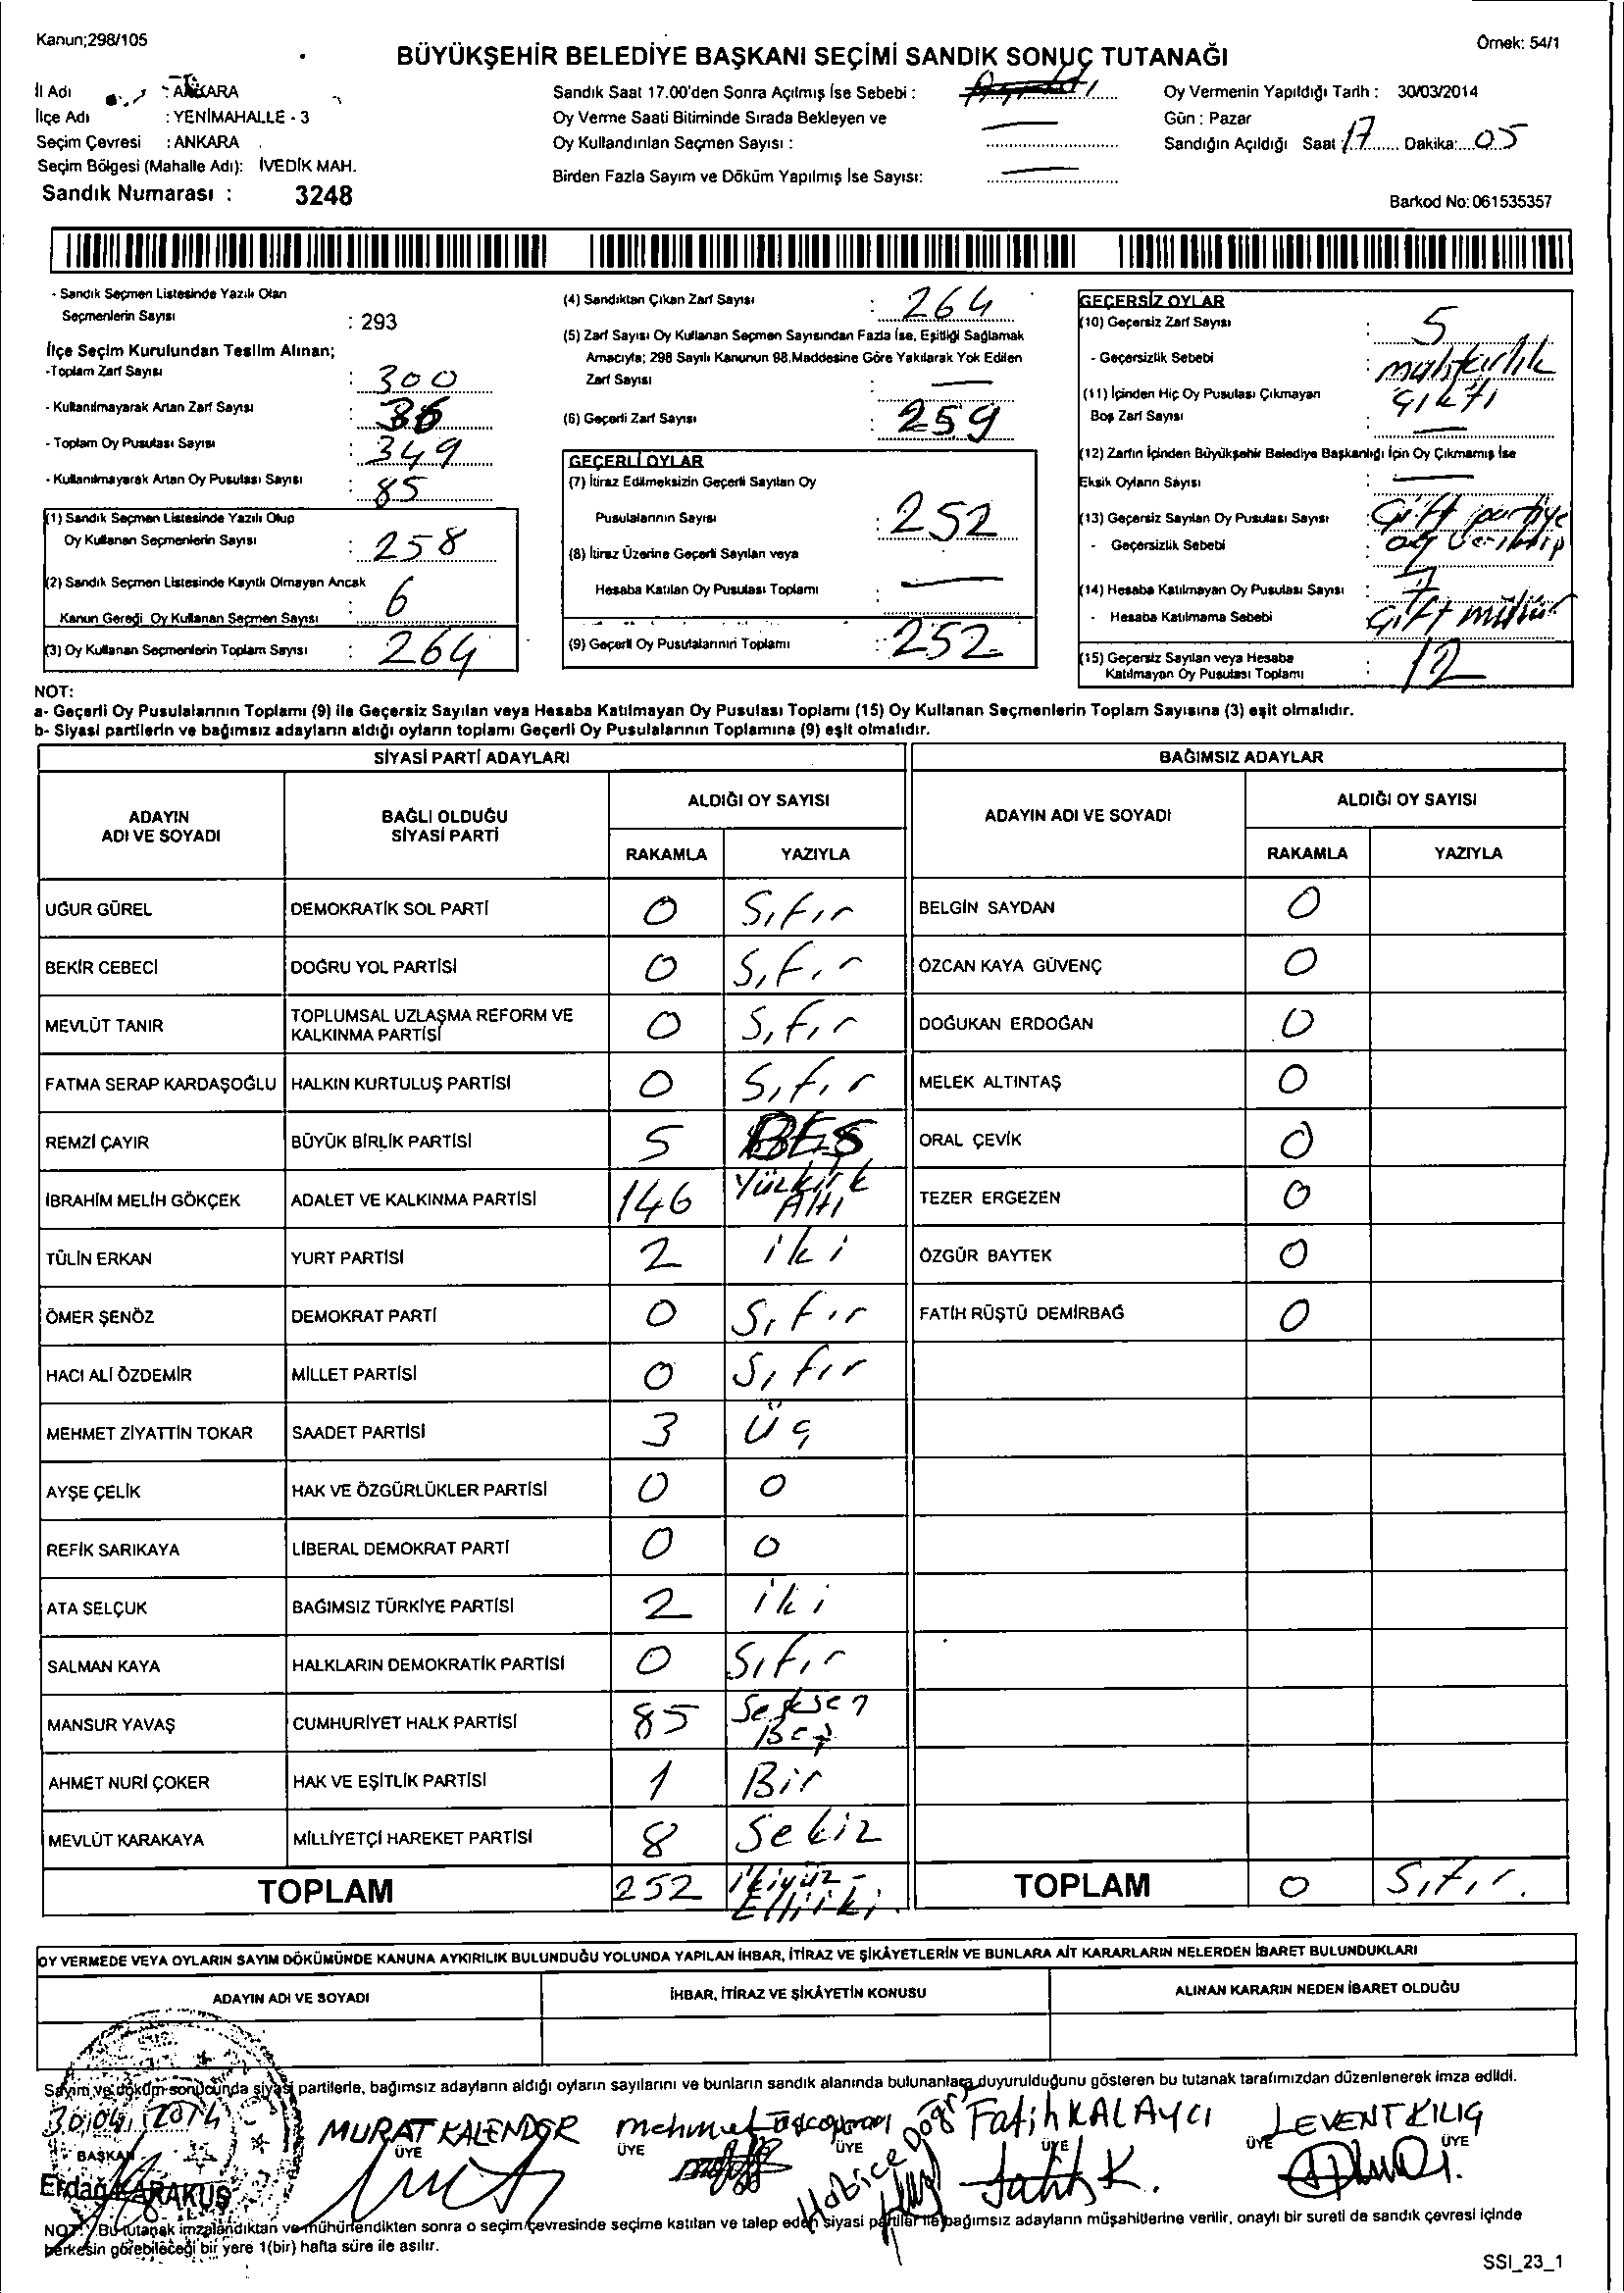 Kanun;298/105
Örnek: 54/1
BÜYÜKŞEHİR BELEDİYE BAŞKANI SEÇİMİ SANDIK SONUÇ TUTANAĞI
İl Adı : ANKARA
İlçe Adı : YENİMAHALLE - 3
Seçim Çevresi : ANKARA
Seçim Bölgesi (Mahalle Adı): İVEDİK MAH.
Sandık Numarası : 3248
Sandık Saat 17.00'den Sonra Açılmış İse Sebebi :
Oy Verme Saati Bitiminde Sırada Bekleyen ve
Oy Kullandırılan Seçmen Sayısı : —
Birden Fazla Sayım ve Döküm Yapılmış İse Sayısı: —
Oy Vermenin Yapıldığı Tarih : 30/03/2014
Gün : Pazar
Sandığın Açıldığı Saat : 17 Dakika: 05
Barkod No: 061535357
- Sandık Seçmen Listesinde Yazılı Olan
Seçmenlerin Sayısı : 293
İlçe Seçim Kurulundan Teslim Alınan;
-Toplam Zarf Sayısı : 300
- Kullanılmayarak Artan Zarf Sayısı : 36
- Toplam Oy Pusulası Sayısı : 349
- Kullanılmayarak Artan Oy Pusulası Sayısı : 85
(1) Sandık Seçmen Listesinde Yazılı Olup
Oy Kullanan Seçmenlerin Sayısı : 258
(2) Sandık Seçmen Listesinde Kayıtlı Olmayan Ancak
Kanun Gereği Oy Kullanan Seçmen Sayısı : 6
(3) Oy Kullanan Seçmenlerin Toplam Sayısı : 264
(4) Sandıktan Çıkan Zarf Sayısı : 264
(5) Zarf Sayısı Oy Kullanan Seçmen Sayısından Fazla İse, Eşitliği Sağlamak
Amacıyla; 298 Sayılı Kanunun 98.Maddesine Göre Yakılarak Yok Edilen
Zarf Sayısı : —
(6) Geçerli Zarf Sayısı : 259
GEÇERLİ OYLAR
(7) İtiraz Edilmeksizin Geçerli Sayılan Oy
Pusulalarının Sayısı : 252
(8) İtiraz Üzerine Geçerli Sayılan veya
Hesaba Katılan Oy Pusulası Toplamı : —
(9) Geçerli Oy Pusulalarının Toplamı : 252
GEÇERSİZ OYLAR
(10) Geçersiz Zarf Sayısı : 5
- Geçersizlik Sebebi : muhtarlık
çıktı
(11) İçinden Hiç Oy Pusulası Çıkmayan
Boş Zarf Sayısı : —
(12) Zarfın İçinden Büyükşehir Belediye Başkanlığı İçin Oy Çıkmamış İse
Eksik Oyların Sayısı : —
(13) Geçersiz Sayılan Oy Pusulası Sayısı : Çift partiye
- Geçersizlik Sebebi : oy
(14) Hesaba Katılmayan Oy Pusulası Sayısı : 7
- Hesaba Katılmama Sebebi : Çift mühür
(15) Geçersiz Sayılan veya Hesaba
Katılmayan Oy Pusulası Toplamı : 12
NOT:
a- Geçerli Oy Pusulalarının Toplamı (9) ile Geçersiz Sayılan veya Hesaba Katılmayan Oy Pusulası Toplamı (15) Oy Kullanan Seçmenlerin Toplam Sayısına (3) eşit olmalıdır.
b- Siyasi partilerin ve bağımsız adayların aldığı oyların toplamı Geçerli Oy Pusulalarının Toplamına (9) eşit olmalıdır.
SİYASİ PARTİ ADAYLARI
BAĞIMSIZ ADAYLAR
ADAYIN ADI VE SOYADI
BAĞLI OLDUĞU SİYASİ PARTİ
ALDIĞI OY SAYISI
RAKAMLA YAZIYLA
ADAYIN ADI VE SOYADI
ALDIĞI OY SAYISI
RAKAMLA YAZIYLA
UĞUR GÜREL DEMOKRATİK SOL PARTİ 0 Sıfır BELGİN SAYDAN 0
BEKİR CEBECİ DOĞRU YOL PARTİSİ 0 Sıfır ÖZCAN KAYA GÜVENÇ 0
MEVLÜT TANIR TOPLUMSAL UZLAŞMA REFORM VE KALKINMA PARTİSİ 0 Sıfır DOĞUKAN ERDOĞAN 0
FATMA SERAP KARDAŞOĞLU HALKIN KURTULUŞ PARTİSİ 0 Sıfır MELEK ALTINTAŞ 0
REMZİ ÇAYIR BÜYÜK BİRLİK PARTİSİ 5 BEŞ ORAL ÇEVİK 0
İBRAHİM MELİH GÖKÇEK ADALET VE KALKINMA PARTİSİ 146 Yüzkırk Altı TEZER ERGEZEN 0
TÜLİN ERKAN YURT PARTİSİ 2 iki ÖZGÜR BAYTEK 0
ÖMER ŞENÖZ DEMOKRAT PARTİ 0 Sıfır FATİH RÜŞTÜ DEMİRBAĞ 0
HACI ALİ ÖZDEMİR MİLLET PARTİSİ 0 Sıfır
MEHMET ZİYATTİN TOKAR SAADET PARTİSİ 3 Üç
AYŞE ÇELİK HAK VE ÖZGÜRLÜKLER PARTİSİ 0 0
REFİK SARIKAYA LİBERAL DEMOKRAT PARTİ 0 0
ATA SELÇUK BAĞIMSIZ TÜRKİYE PARTİSİ 2 iki
SALMAN KAYA HALKLARIN DEMOKRATİK PARTİSİ 0 Sıfır
MANSUR YAVAŞ CUMHURİYET HALK PARTİSİ 85 Seksen Beş
AHMET NURİ ÇOKER HAK VE EŞİTLİK PARTİSİ 1 Bir
MEVLÜT KARAKAYA MİLLİYETÇİ HAREKET PARTİSİ 8 Sekiz
TOPLAM 252 ikiyüz-Elliiki. TOPLAM 0 Sıfır.
OY VERMEDE VEYA OYLARIN SAYIM DÖKÜMÜNDE KANUNA AYKIRILIK BULUNDUĞU YOLUNDA YAPILAN İHBAR, İTİRAZ VE ŞİKÂYETLERİN VE BUNLARA AİT KARARLARIN NELERDEN İBARET BULUNDUKLARI
ADAYIN ADI VE SOYADI İHBAR, İTİRAZ VE ŞİKÂYETİN KONUSU ALINAN KARARIN NEDEN İBARET OLDUĞU
Sayım ve döküm sonucunda siyasi partilerle, bağımsız adayların aldığı oyların sayılarını ve bunların sandık alanında bulunanlara duyurulduğunu gösteren bu tutanak tarafımızdan düzenlenerek imza edildi.
30/04/2014
MURAT KALENDER Mehmet Fatih KALAYCI LEVENT KILIÇ
BAŞKAN ÜYE ÜYE ÜYE ÜYE ÜYE ÜYE
KARAKUŞ Habice Fatih K.
NOT: Bu tutanak imzalandıktan ve mühürlendikten sonra o seçim çevresinde seçime katılan ve talep eden siyasi partiler ile bağımsız adayların müşahitlerine verilir, onaylı bir sureti de sandık çevresi içinde
herkesin görebileceği bir yere 1(bir) hafta süre ile asılır.
SSI_23_1